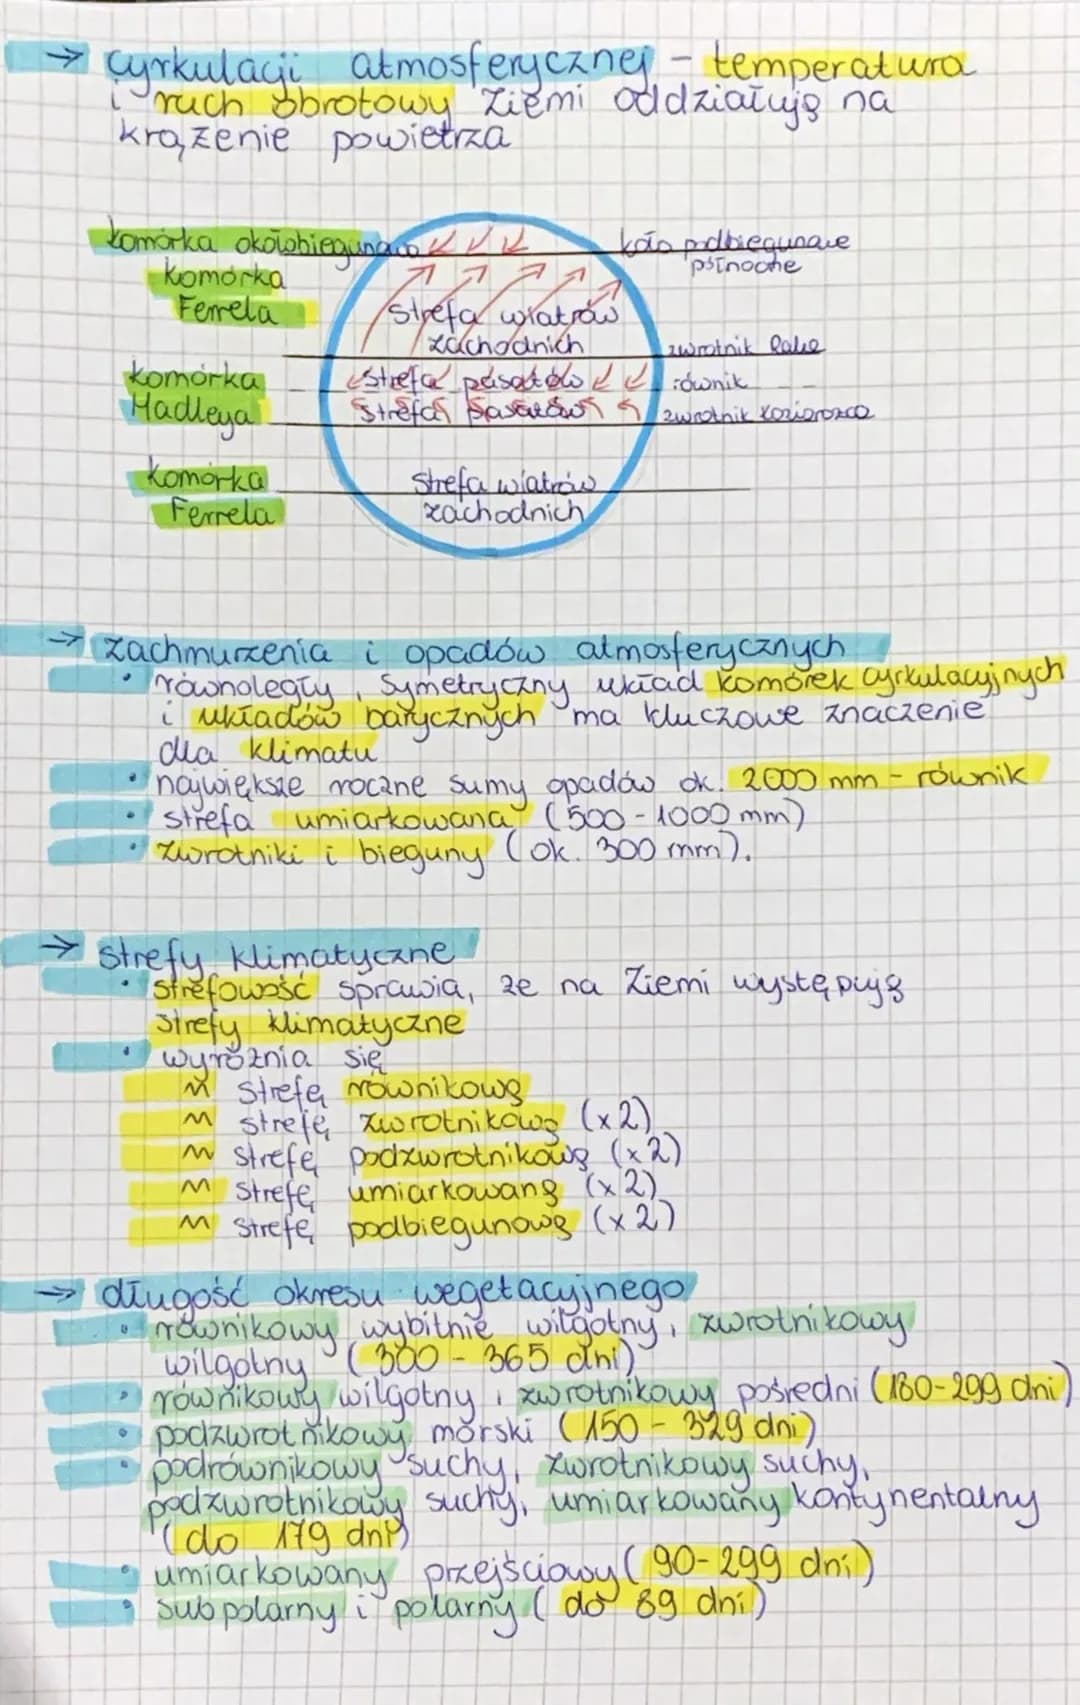 → cyrkulacji atmosferycznej - temperatura
i ruch obrotowy Ziemi oddziałują na
krążenie powietrza
komórka okołobiegunowa
koło podbiegunowe
północne
komórka
Ferrela
strefa wiatrów
zachodnich
zwrotnik Raka
komórka
Hadleya
strefa pasatów
równik
strefa pasatów
zwrotnik Koziorożca
komórka
Ferrela
strefa wiatrów
zachodnich
→ zachmurzenia i opadów atmosferycznych
• równoległy, symetryczny układ komórek cyrkulacyjnych
i układów barycznych ma kluczowe znaczenie
dla klimatu
• największe roczne sumy opadów ok. 2000 mm - równik
• strefa umiarkowana (500-1000 mm)
• zwrotniki i bieguny (ok. 300 mm).
→ strefy klimatyczne
• strefowość sprawia, że na Ziemi występują
strefy klimatyczne
• wyróżnia się
~ strefę równikową
~ strefę zwrotnikową (x2)
~ strefę podzwrotnikową (x2)
~ strefę umiarkowaną (x2)
~ strefę podbiegunową (x2)
→ długość okresu wegetacyjnego
• równikowy wybitnie wilgotny, zwrotnikowy
wilgotny (300 - 365 dni)
• równikowy wilgotny, zwrotnikowy pośredni (180-299 dni)
• podzwrotnikowy morski (150 - 329 dni)
• podrównikowy suchy, zwrotnikowy suchy,
podzwrotnikowy suchy, umiarkowany kontynentalny
(do 179 dni)
• umiarkowany przejściowy (90-299 dni)
• subpolarny i polarny (do 89 dni)